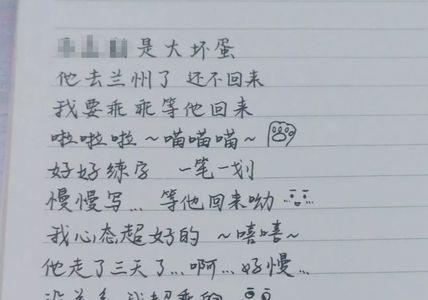 是大坏蛋
他去兰州了 还不回来
我要乖乖等他回来
啦啦啦~喵喵喵~
好好练字 一笔一划
慢慢写... 等他回来呦
我心态超好的 ~嘻嘻~
他走了三天了...啊...好慢...
没关系 我超乖的